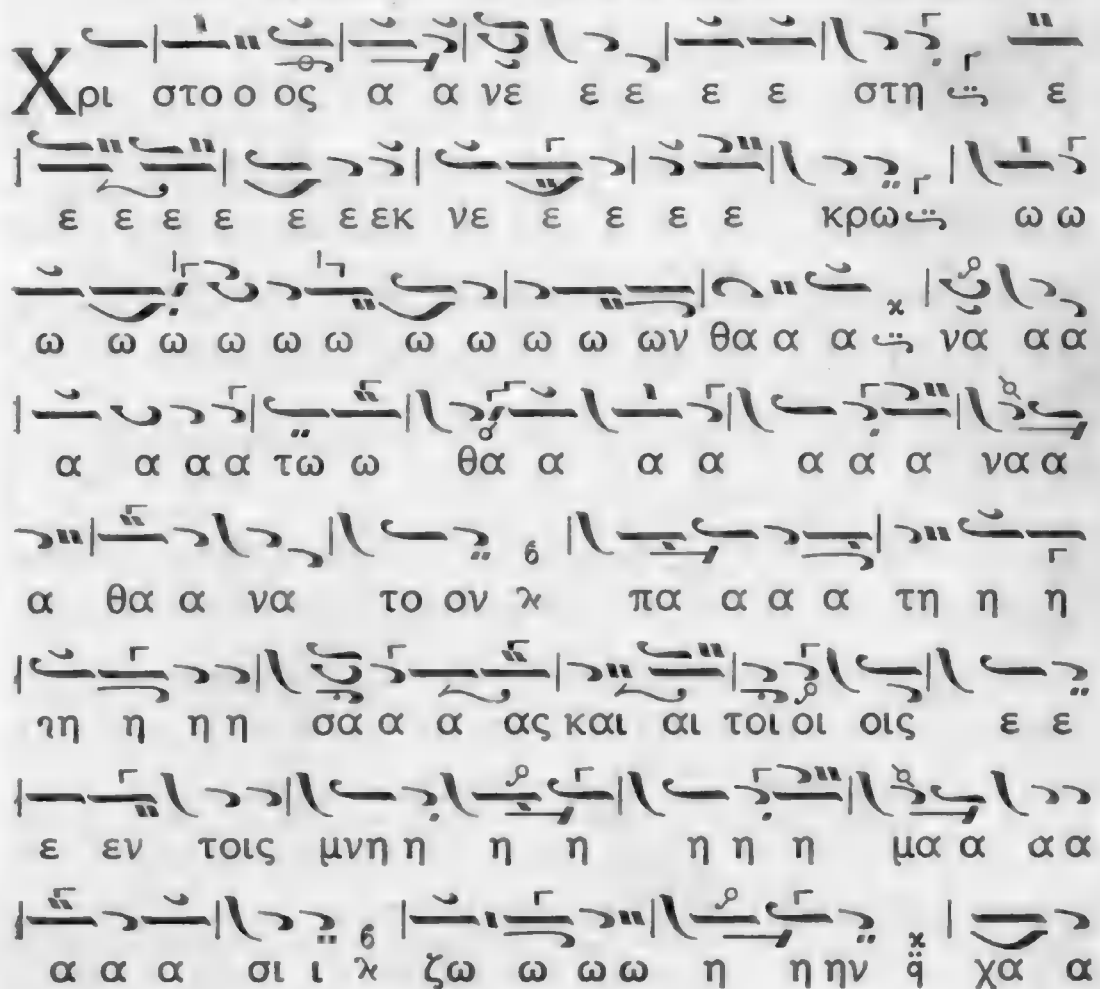 Χρι στο ο ος α α νε ε ε ε ε στη ε
ε ε ε ε ε ε εκ νε ε ε ε ε κρω ω ω
ω ω ω ω ω ω ω ω ω ω ων θα α α να α α
α α α α τω ω θα α α α α α α να α
α θα α να το ον πα α α α τη η η
τη η η η σα α α ας και αι τοι οι οις ε ε
ε εν τοις μνη η η η η η η μα α α α
α α α σι ι ζω ω ω ω η η ην χα α